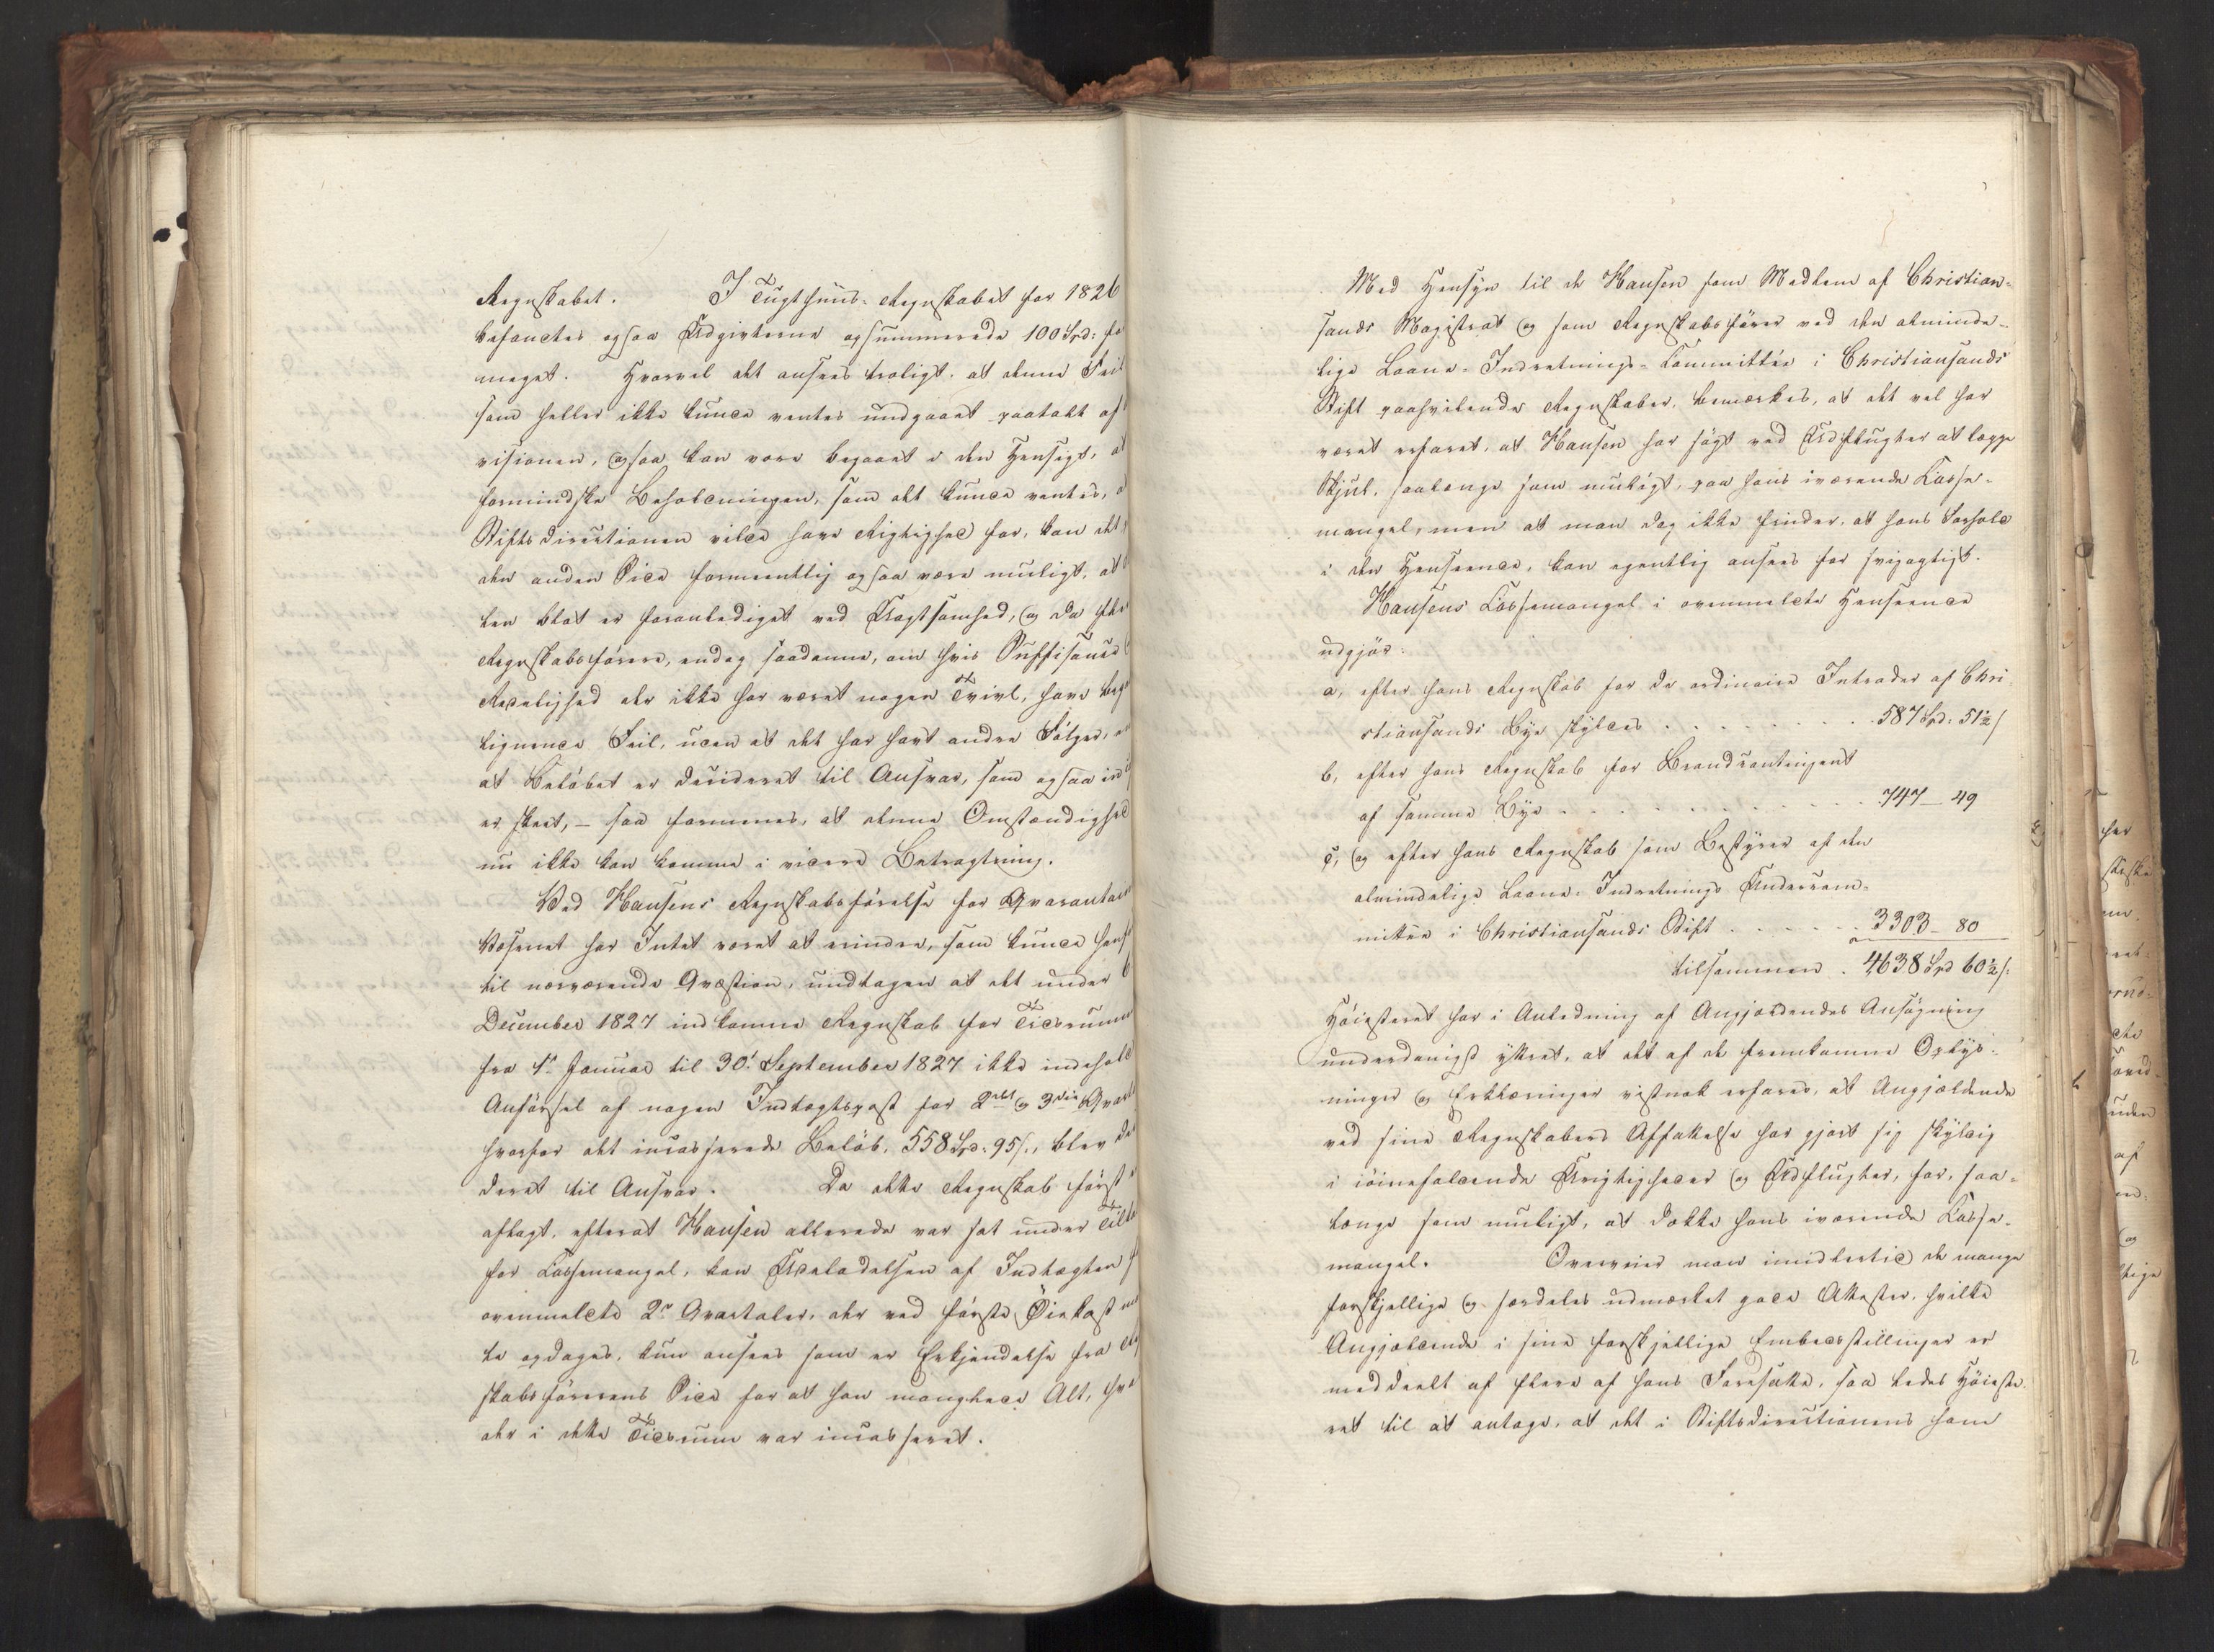 Regnskabet. I Tugthuus-Regnskabet for 1826
befandtes ogsaa Udgivterne opsummerede 100 Spd: for
meget. Hvorvel det ansees troligt, at denne Feil
som heller ikke kunde ventes undgaaet paatalt af
visionen, ogsaa kan være begaaet i den Hensigt, at
formindske Beholdningen, som det kunde ventes, at
Stiftsdirectionen vilde have Rigtighed for, kan det
den anden Side formeentlig ogsaa være muligt, at
den blot er foranlediget ved Uagtsomhed, og da flere
Regnskabsførere, endog saadanne, om hvis Suffisance
Redelighed der ikke har været nogen Tvivl, have begaaet
lignende Feil, uden at det har havt andre Følger, end
at Beløbet er decideret til Ansvar, som ogsaa
er skeet, – saa formenes, at denne Omstændighed
nu ikke kan komme i videre Betragtning.
Ved Hansens Regnskabsførelse for Qvarantaine
Væsenet har Intet været at erindre, som kunde henføres
til nærværende Qvæstion, undtagen at det under 6
December 1827 indkomne Regnskab for Tidsrummet
fra 1ste Januar til 30te September 1827 ikke indeholdt
Anførsel af nogen Indtægtspost for 2det og 3die Qvartal
hvorfor det incasserede Beløb, 558 Spd: 95 s., blev
deret til Ansvar. Da dette Regnskab først
aflagt, efterat Hansen allerede var sat under Tiltale
for Cassemangel, kan Udeladelsen af Indtægten
ovenmeldte 2de Qvartaler, der ved første Øiekast
te opdages, kun ansees som en Erkjendelse fra
skabsførerens Side for at han manglede Alt, hvad
der i dette Tidsrum var incasseret.
Med Hensyn til de Hansen som Medlem af Christian-
sands Magistrat og som Regnskabsfører ved den alminde-
lige Laane-Indretnings-Committée i Christiansands
Stift paahvilende Regnskaber, bemærkes, at det vel har
været erfaret, at Hansen har søgt ved Udflugter at lægge
Skjul, saalænge som muligt, paa hans iværende Casse-
mangel, men at man dog ikke finder, at hans Forhold
i den Henseende, kan egentlig ansees for svigagtigt.
Hansens Cassemangel i ovenmeldte Henseende
udgjør:
a, efter hans Regnskab for de ordinaire Intrader af Chri-
stiansands Bye skyldes . . . . . . . . 587 Spd: 51½ s
b, efter hans Regnskab for Brandcontingent
af samme Bye . . . . . . . . 747 – 49
c, og efter hans Regnskab som Bestyrer af den
almindelige Laane-Indretnings Undercom-
mittee i Christiansands Stift . . . . . . 3303 – 80
tilsammen . 4638 Spd 60½ s:
Høiesteret har i Anledning af Angjældendes Ansøgning
underdanigst yttret, at det af de fremkomne Oplys-
ninger og Erklæringer vistnok erfares, at Angjældende
ved sine Regnskabers Affattelse har gjort sig skyldig
i iøinefaldende Urigtigheder og Udflugter, for, saa-
længe som muligt, at dække hans iværende Casse-
mangel. Overveier man imidlertid de mange
forskjellige og særdeles udmærket gode Attester, hvilke
Angjældende i sine forskjellige Embedsstillinger er
meddeelt af flere af hans Foresatte, saa ledes Høieste-
ret til at antage, at det i Stiftsdirectionens som